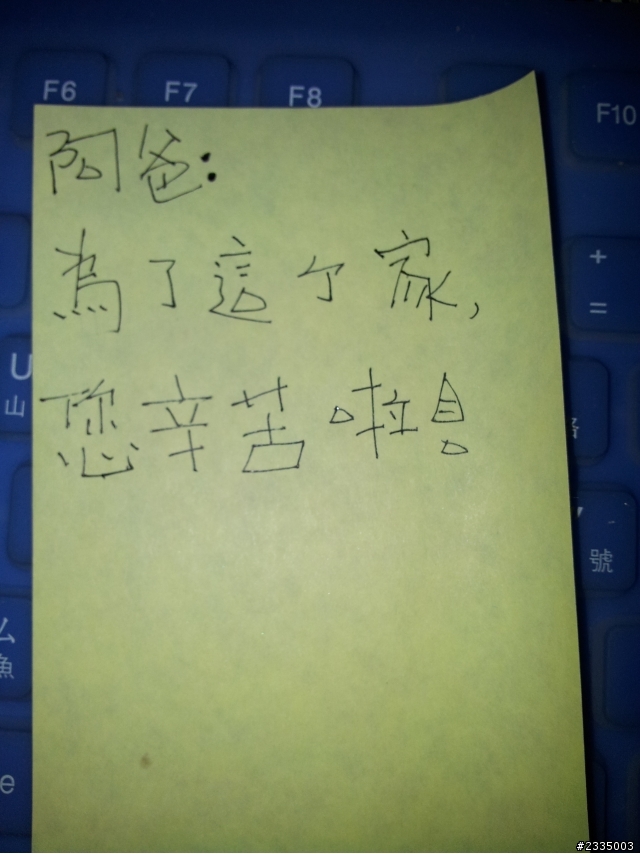 F6 F7 F8 F10
阿爸:
為了這个家,
+
=
U
山
您辛苦啦!
號
e
#2335003